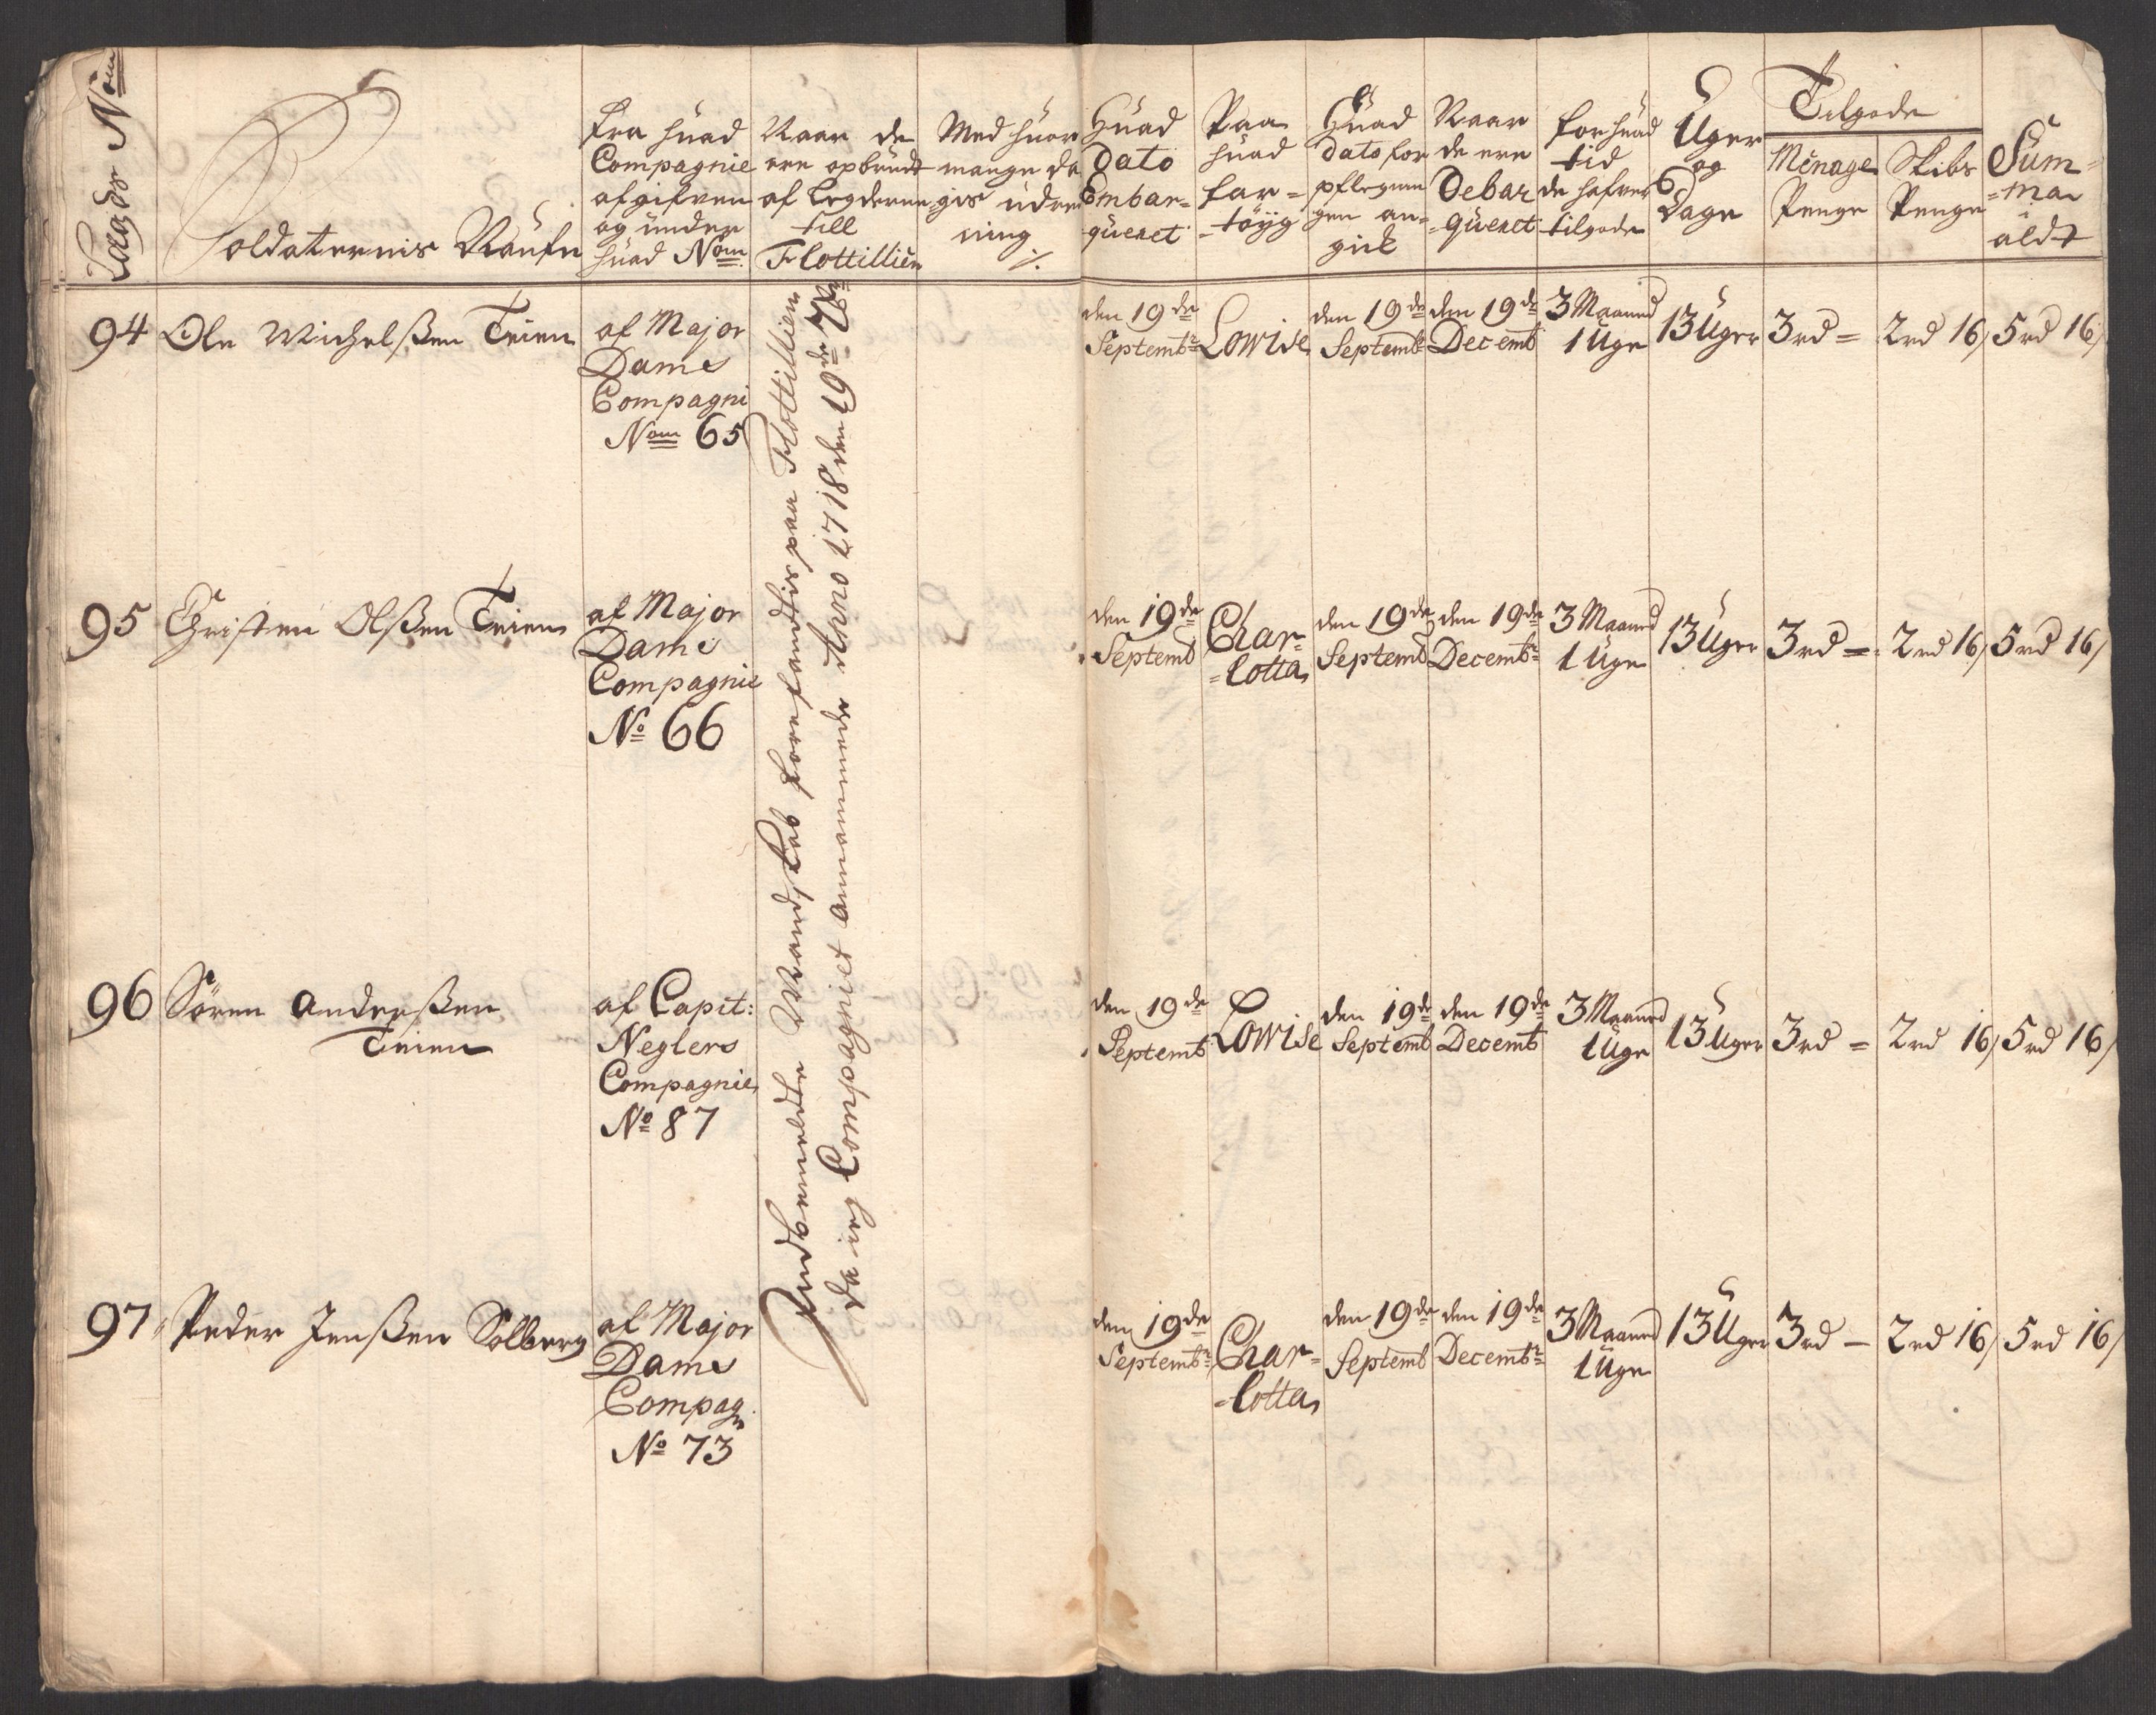 Lægds Nom
Soldaternis Naufn
Fra huad
Compagnie
afgifven
og under
huad Nom
Naar de
ere opbrudt
af Legderne
till
Flottillien
Med huor
mange da
gis udred
ning
Huad
Dato
Embar=
queret
Paa
huad
far=
=töÿg
Huad
dato for
pflegnin
gen an=
gik
Naar
de ere
Debar
=queret
for huad
tid
de hafver
tilgode
Uger
og
Dage
Tilgode
Menage
Penge
Skibs
Penge
Sum=
=ma
aldt
94 Ole Michelssen Teien
af Major
Dams
Compagni
Nom 65
den 19de
Septembr
Lowise
den 19de
Septemb
den 19de
Decemb
3 Maaned
1 Uge
13 Uger
3rd =
2rd 16/
5rd 16/
95 Christen Olssen Teien
af Major
Dams
Compagnie
No 66
den 19de
Septemb
Char=
=lotta
den 19de
Septemb
den 19de
Decembr
3 Maaned
1 Uge
13 Uger
3rd =
2rd 16/
5rd 16/
96 Sören Anderssen
Teien
af Capit:
Neglers
Compagnie
No 87
den 19de
Septemb
Lowise
den 19de
Septemb
den 19de
Decemb
3 Maaned
1 Uge
13 Uger
3rd =
2rd 16/
5rd 16/
97 Peder Jenssen Solberg
af Major
Dams
Compag
No 73
den 19de
Septembr
Char=
=lotta
den 19de
Septemb
den 19de
Decembr
3 Maaned
1 Uge
13 Uger
3rd —
2rd 16/
5rd 16/
Indbemeldte Mandskab forefandtis paa Flottillien
da ieg Compagniet annammede Anno 1718 den 19de 7br